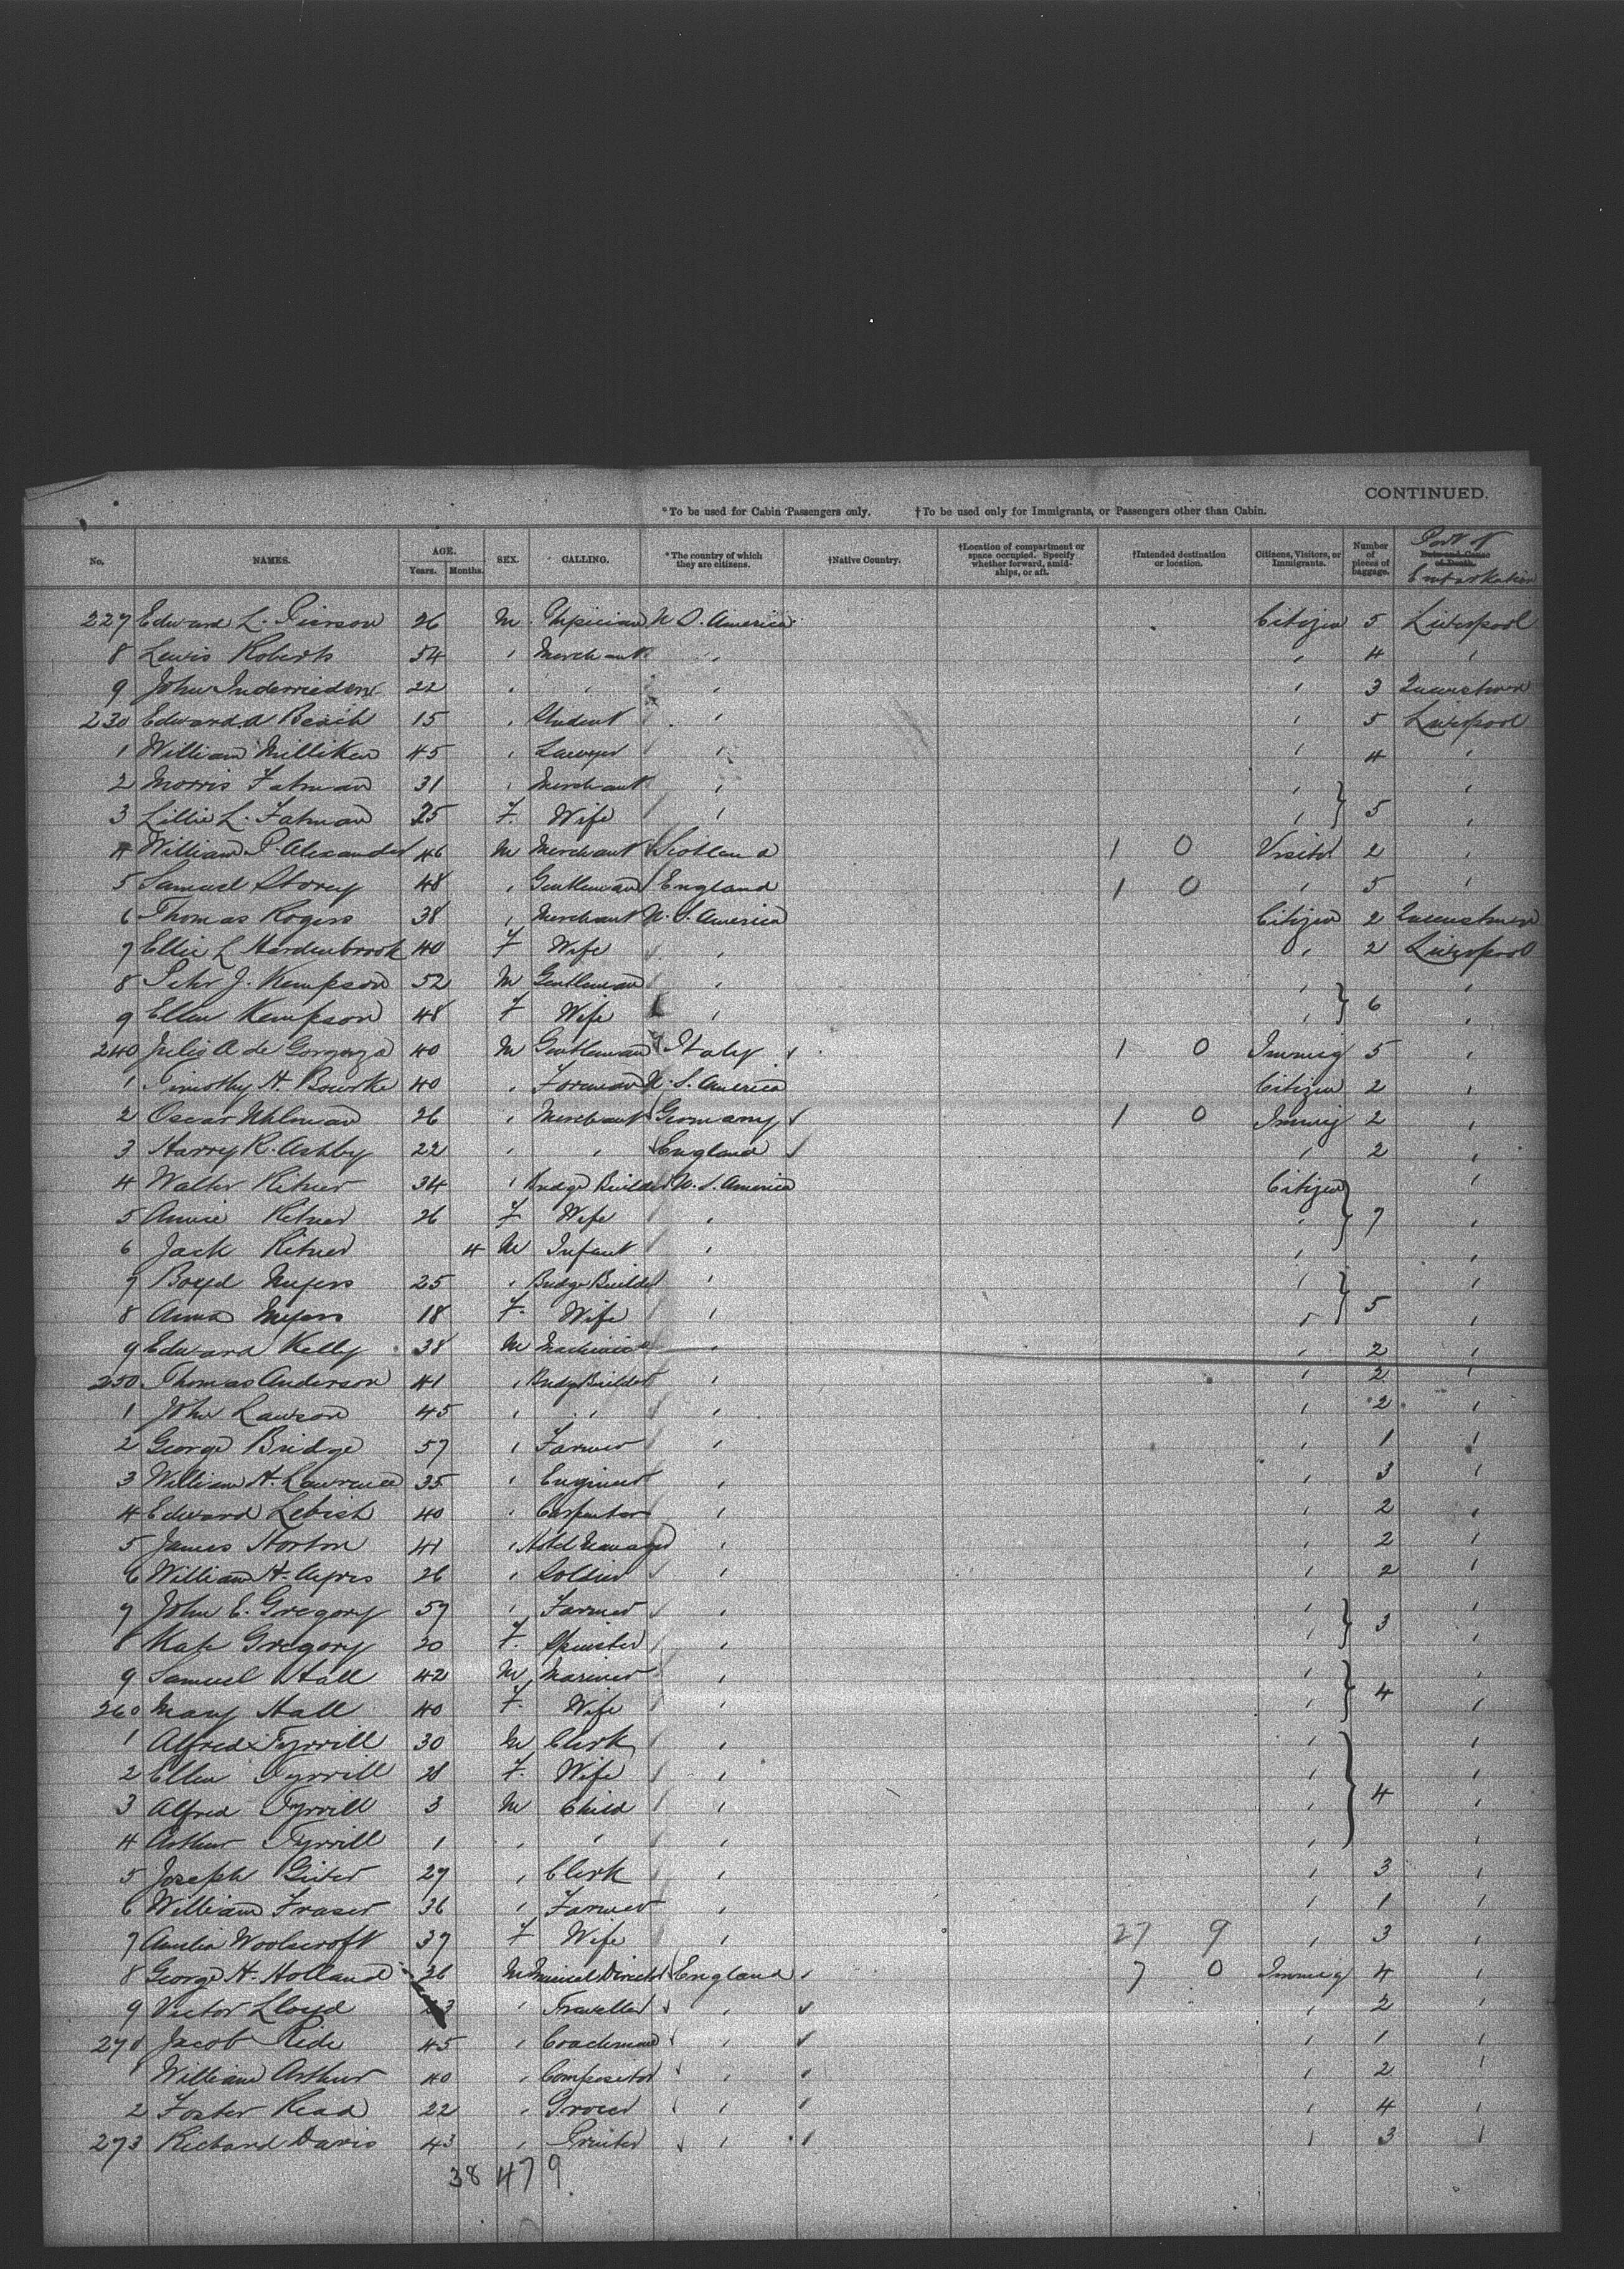 CONTINUED.
*To be used for Cabin Passengers only. †To be used only for Immigrants, or Passengers other than Cabin.
No. NAMES. AGE. Years. Months. SEX. CALLING. *The country of which they are citizens. †Native Country. †Location of compartment or space occupied. Specify whether forward, amidships, or aft. †Intended destination or location. Citizens, Visitors, or Immigrants. Number of pieces of baggage. Date and Cause of Death. Port of Embarkation
227 Edward L. Pierson 26 M Physician U S. America Citizen 5 Liverpool
8 Lewis Roberts 54 " Merchant " " 4 "
9 John Inderrieden 22 " " " " 3 Queenstown
230 Edward A Beach 15 " Student " " 5 Liverpool
1 William Milliken 45 " Lawyer " " 4 "
2 Morris Fatman 31 " Merchant " " "
3 Lillie L. Fatman 25 F. Wife " " 5 "
4 William P. Alexander 46 M Merchant Scotland 1 0 Visitor 2 "
5 Samuel Storey 48 " Gentleman England 1 0 " 5 "
6 Thomas Rogers 38 " Merchant U. S. America Citizen 2 Queenstown
7 Ellie L Hardenbrook 40 F Wife " " 2 Liverpool
8 J. Kempson 52 M Gentleman " " "
9 Ellen Kempson 48 F Wife " " 6 "
240 A de Gonzaga 40 M Gentleman Italy 1 0 Immig 5 "
1 Timothy H. Bourke 40 " Foreman U. S. America Citizen 2 "
2 Oscar Uhlman 26 " Merchant Germany 1 0 Immig 2 "
3 Harry R. Ashby 22 " " England " 2 "
4 Walter Kitner 34 " Bridge Builder U. S. America Citizen "
5 Annie Kitner 26 F Wife " " 7 "
6 Jack Kitner 4 M Infant " " "
7 Boyd Myers 25 " Bridge Builder " "
8 Anna Myers 18 F. Wife " " 5 "
9 Edward Kelly 38 M Machinist " " 2 "
250 Thomas Anderson 41 " Bridge Builder " " 2 "
1 John Lawson 45 " " " " 2 "
2 George Bridge 57 " Farmer " " 1 "
3 William H. Lawrence 35 " Engineer " " 3 "
4 Edward Lebish 40 " Carpenter " " 2 "
5 James Horton 41 " Hotel Manager " " 2 "
6 William H. Ayres 26 " Soldier " " 2 "
7 John E. Gregory 57 " Farmer " " "
8 Kate Gregory 20 F. Spinster " " 3 "
9 Samuel Hall 42 M Mariner " " "
260 Mary Hall 40 F. Wife " " 4 "
1 Alfred Tyrrill 30 M Clerk " " "
2 Ellen Tyrrill 28 F. Wife " " "
3 Alfred Tyrrill 3 M Child " " 4 "
4 Arthur Tyrrill 1 " " " " "
5 Joseph 27 " Clerk " " 3 "
6 William Fraser 36 " Farmer " " 1 "
7 Amelia Woolscroft 37 F Wife " 27 9 " 3 "
8 George H. Holland 26 M Musical Director England 7 0 Immig 4 "
9 Victor Lloyd 23 " Traveller " " 2 "
270 Jacob Ride 45 " Coachman " " 1 "
1 William Arthur 40 " Compositor " " 2 "
2 Foster Read 22 " Grocer " " 4 "
273 Richard Davis 43 " Printer " " 3 "
38 47 9